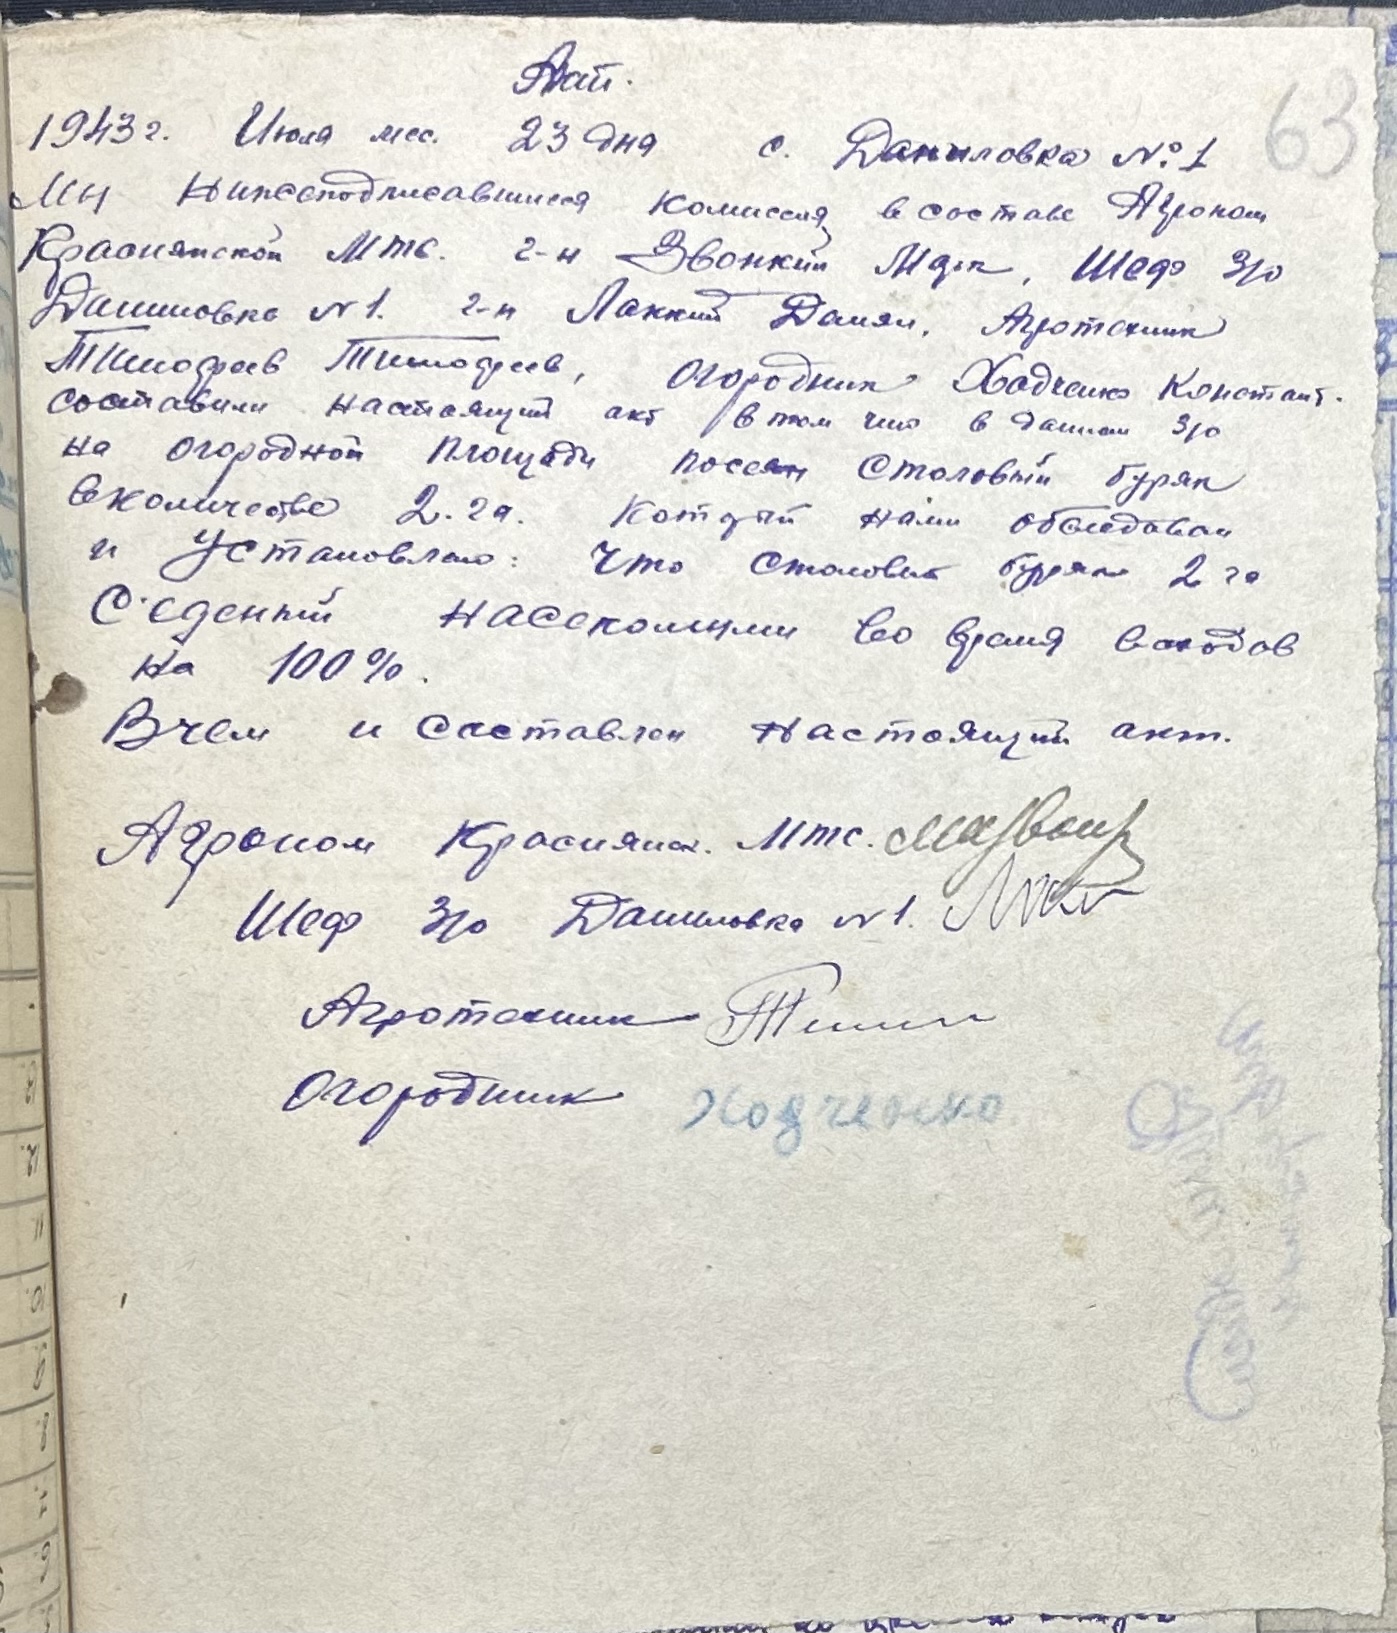 Акт.
63
1943 г. Июля мес. 23 дня с. Даниловка № 1
Мы нижеподписавшиеся комиссия, в составе Агроном
Краснянской Мтс. г-н Звонкий Марк, Шеф З/о
Даниловка N 1. г-н Лаккий Дамян, Агротехник
Тимофеев Тимофеев, огородник Ходченко Констант.
составили настоящий акт в том что в данном З/о
на огородной площади посеян столовый буряк
в количестве 2. га. Который нами обследован
и установлено: что столовый буряк 2 га
С'еденный насекомыми во время всходов
на 100%.
В чем и составлен настоящий акт.
Агроном Краснянск. Мтс.
Шеф З/о Даниловка N 1.
Агротехник
Огородник Ходченко